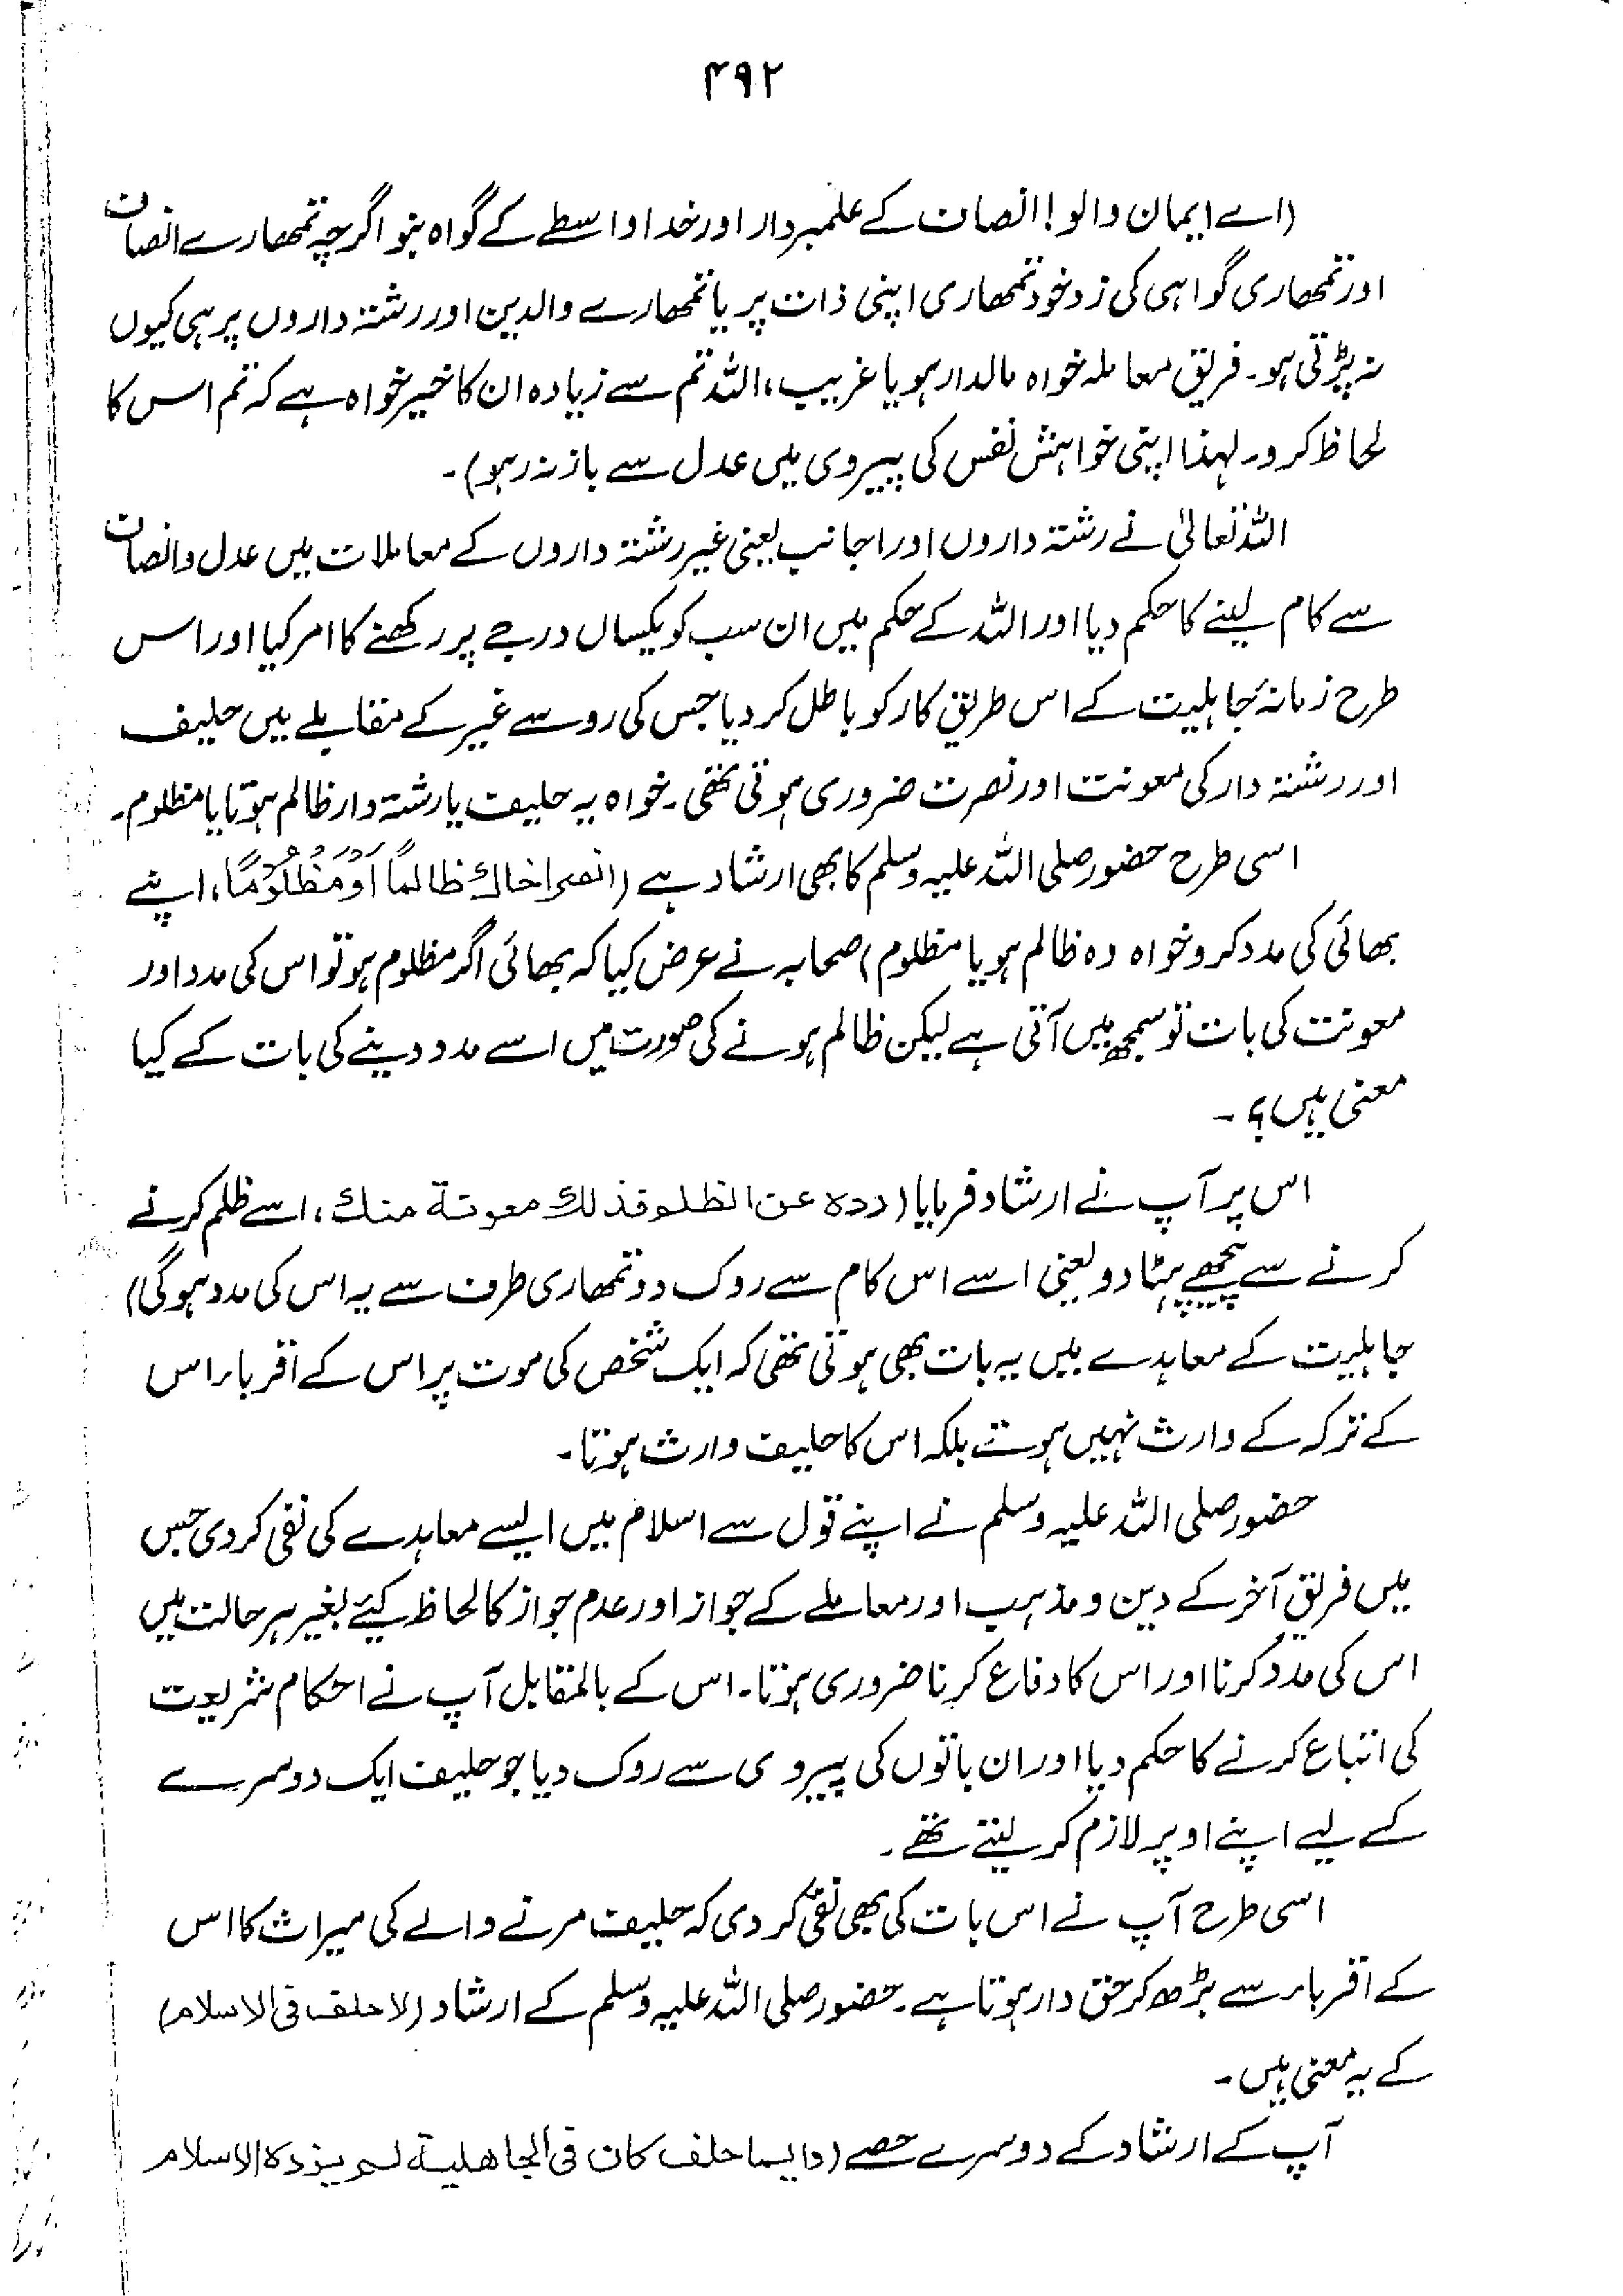 ۴۹۲
(اے ایمان والو! انصاف کے علمبردار اور خدا واسطے کے گواہ بنو اگرچہ تمھارے انصاف
اور تمھاری گواہی کی زد خود تمھاری اپنی ذات پر یا تمھارے والدین اور رشتہ داروں پر ہی کیوں
نہ پڑتی ہو۔ فریق معاملہ خواہ مالدار ہو یا غریب، اللہ تم سے زیادہ ان کا خیر خواہ ہے کہ تم اس کا
لحاظ کرو۔ لہذا اپنی خواہش نفس کی پیروی میں عدل سے باز نہ رہو)۔
اللہ تعالیٰ نے رشتہ داروں اور اجانب یعنی غیر رشتہ داروں کے معاملات میں عدل و انصاف
سے کام لینے کا حکم دیا اور اللہ کے حکم میں ان سب کو یکساں درجے پر رکھنے کا امر کیا اور اس
طرح زمانۂ جاہلیت کے اس طریق کار کو باطل کر دیا جس کی رو سے غیر کے مقابلے میں حلیف
اور رشتہ دار کی معونت اور نصرت ضروری ہوتی تھی۔ خواہ یہ حلیف یا رشتہ دار ظالم ہوتا یا مظلوم۔
اسی طرح حضور صلی اللہ علیہ وسلم کا بھی ارشاد ہے (انصر اخاك ظالماً اَوْ مَظْلُوْمًا، اپنے
بھائی کی مدد کرو خواہ وہ ظالم ہو یا مظلوم) صحابہ نے عرض کیا کہ بھائی اگر مظلوم ہو تو اس کی مدد اور
معونت کی بات تو سمجھ میں آتی ہے لیکن ظالم ہونے کی صورت میں اسے مدد دینے کی بات کے کیا
معنی ہیں؟۔
اس پر آپ نے ارشاد فرمایا (ردہ عن الظلم فذلك معونة منك، اسے ظلم کرنے
کرنے سے پیچھے ہٹا دو یعنی اسے اس کام سے روک دو تمھاری طرف سے یہ اس کی مدد ہوگی)
جاہلیت کے معاہدے میں یہ بات بھی ہوتی تھی کہ ایک شخص کی موت پر اس کے اقرباء اس
کے ترکہ کے وارث نہیں ہوتے بلکہ اس کا حلیف وارث ہوتا۔
حضور صلی اللہ علیہ وسلم نے اپنے قول سے اسلام میں ایسے معاہدے کی نفی کر دی جس
میں فریق آخر کے دین و مذہب اور معاملے کے جواز اور عدم جواز کا لحاظ کیئے بغیر ہر حالت میں
اس کی مدد کرنا اور اس کا دفاع کرنا ضروری ہوتا۔ اس کے بالمقابل آپ نے احکام شریعت
کی اتباع کرنے کا حکم دیا اور ان باتوں کی پیروی سے روک دیا جو حلیف ایک دوسرے
کے لیے اپنے اوپر لازم کر لیتے تھے۔
اسی طرح آپ نے اس بات کی بھی نفی کر دی کہ حلیف مرنے والے کی میراث کا اس
کے اقرباء سے بڑھ کر حق دار ہوتا ہے۔ حضور صلی اللہ علیہ وسلم کے ارشاد (لا حلف فی الاسلام)
کے یہ معنی ہیں۔
آپ کے ارشاد کے دوسرے حصے (وایما حلف کان فی الجاهلیة لم یزدہ الاسلام